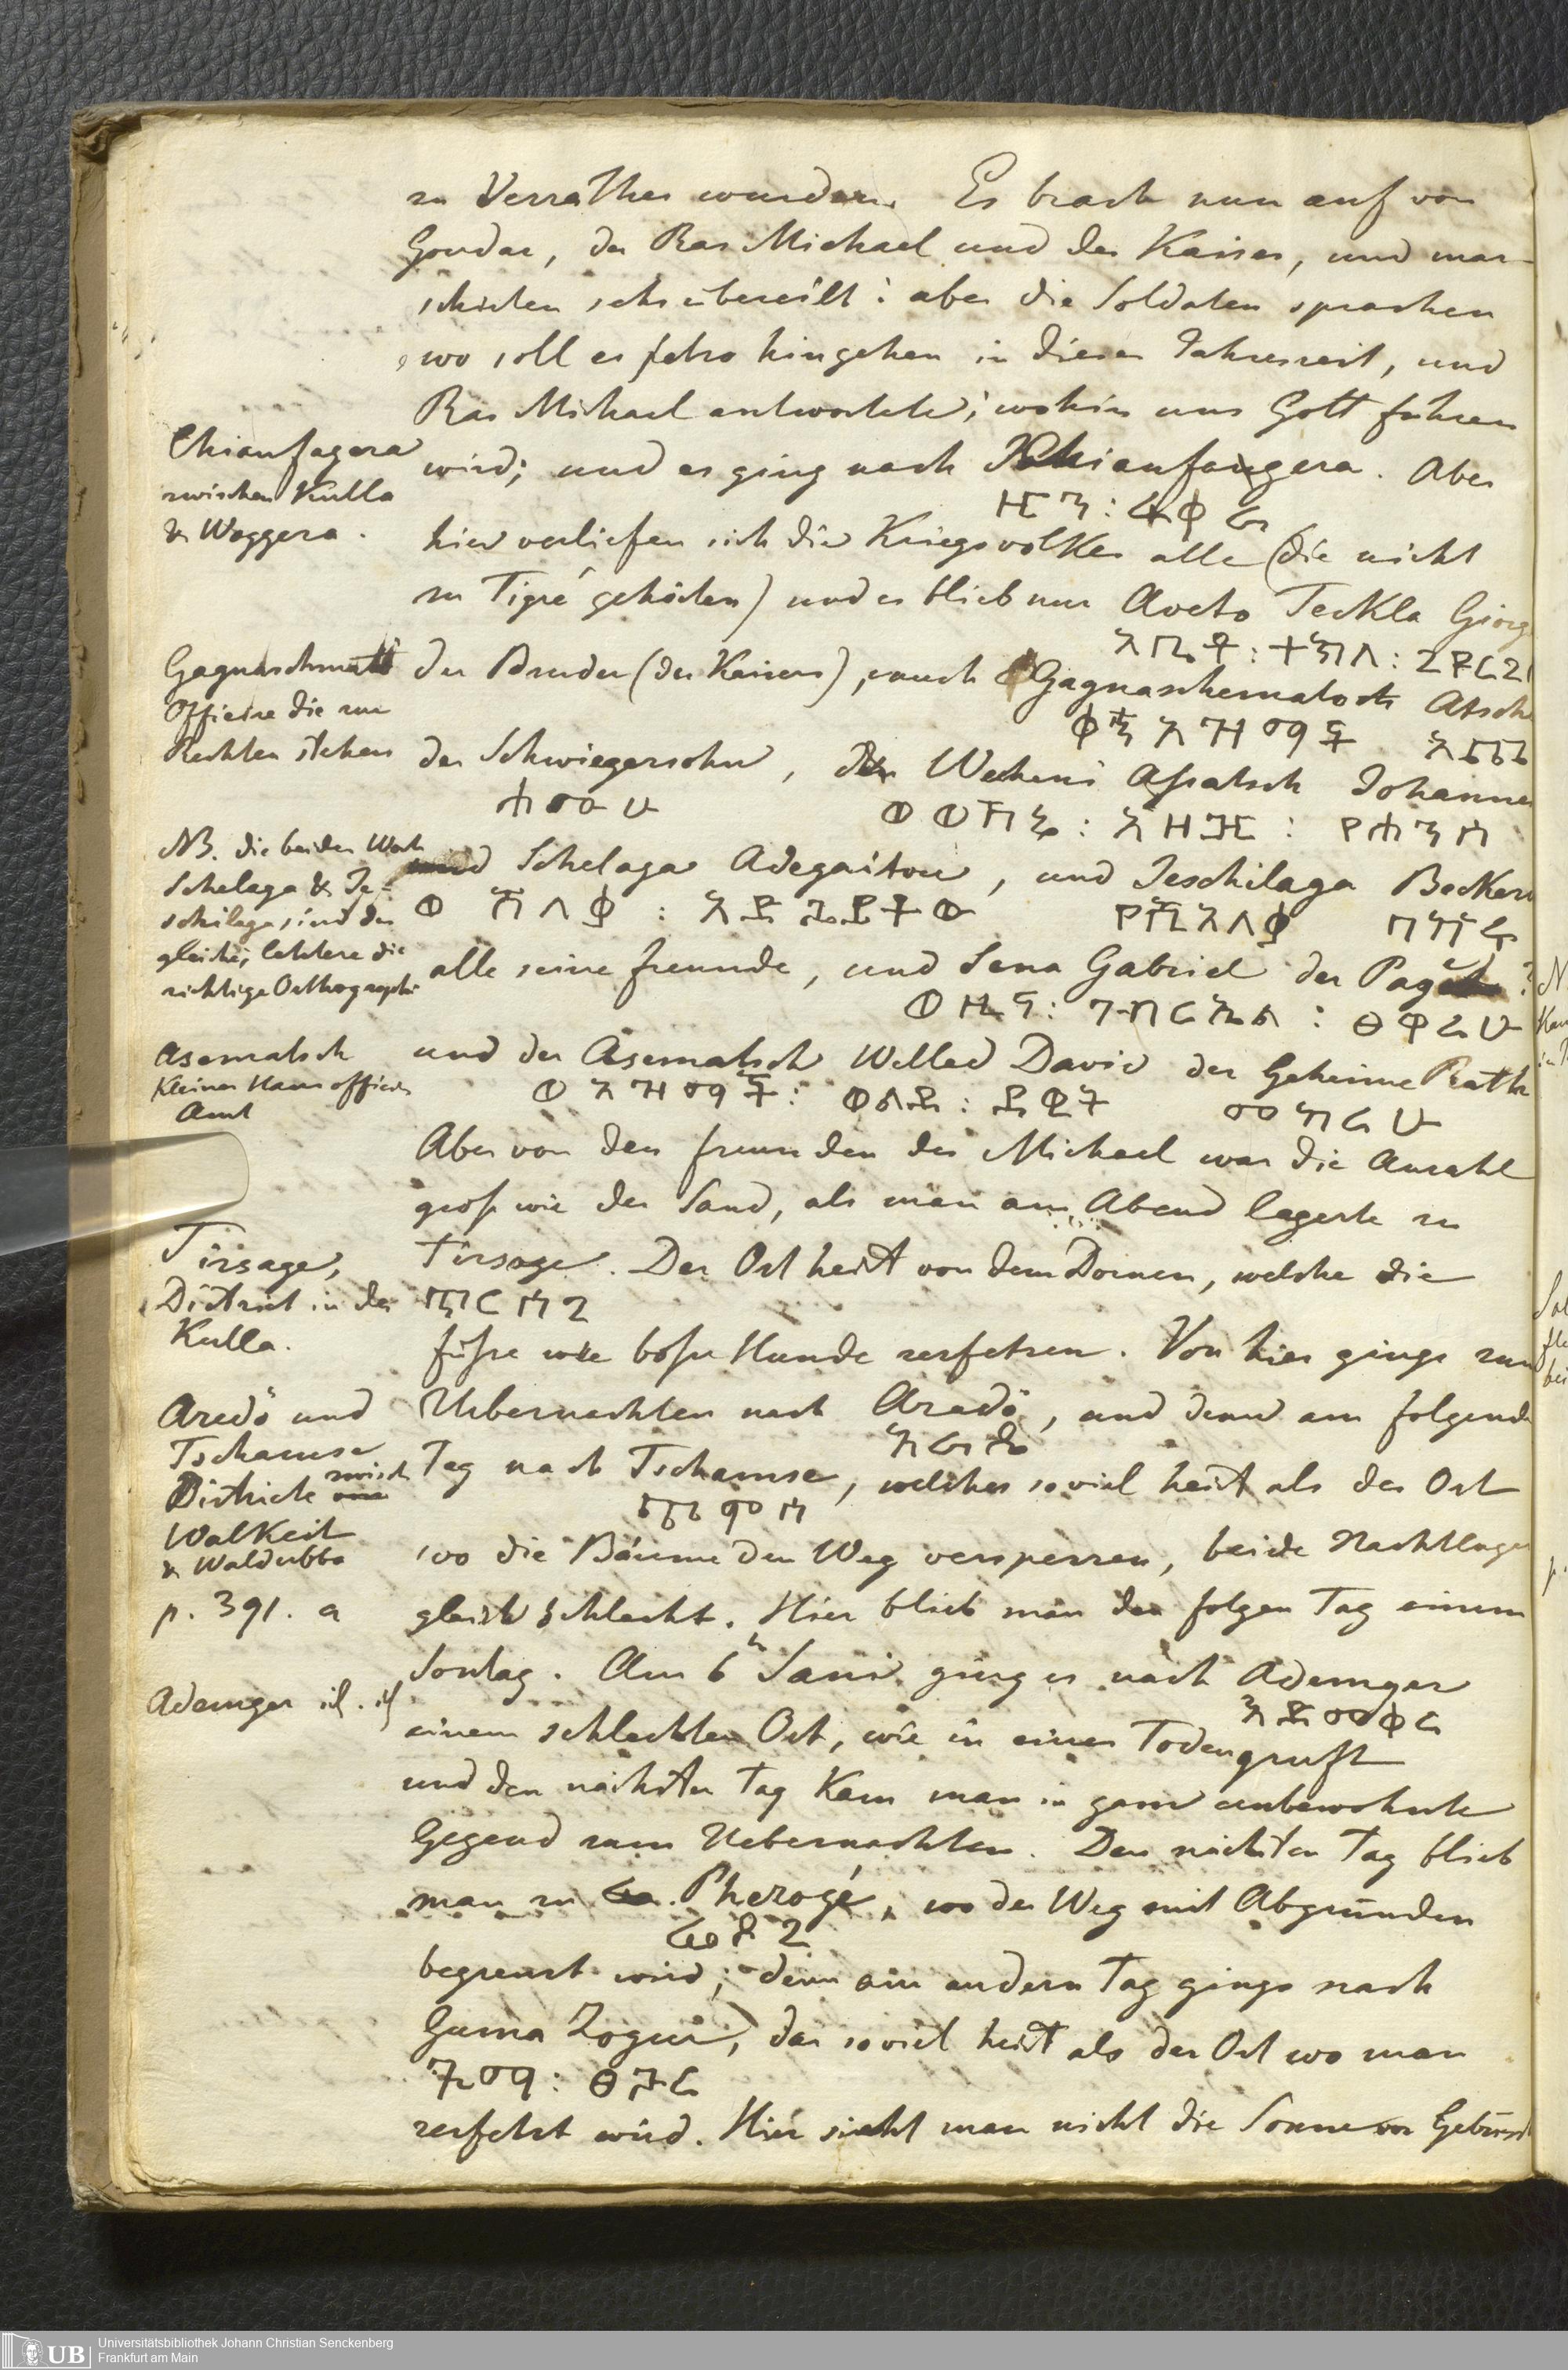 zu Verrather wurden. Es brach nun auf von
Gondar, der Ras Michael und der Kaiser, und mar-
schirten sehr übereilt: aber die Soldaten sprachen
wo soll es jetzo hingehen in dieser Jahreszeit, und
Ras Michael antwortete; wohin uns Gott führen
Chianfagera
zwischen Kulla
& Woggera.
wird; und es ging nach Tschianfangera. Aber
hier verliefen sich die Kriegsvölker alle (die nicht
zu Tigré gehörten) und es blieb nur Aveto Teckla Giorg
አቤቶ : ተክለ : ጊዮርጊ
Officire die zur
Rechten stehen
der Bruder (des Kaisers), auch Gagnaschematsch Atsch
ቀኝ አዝማች
der Schwiegersohn, der Wecheni Assatsch Johannes
ሐማሁ
NB. die beiden Wort
Schelaga & Je-
schilaga, sind die
gleiche, letztere die
richtige Orthographie
und Schelaga Adegaitou, und Jeschilaga Becker
ወ ሻለቃ :
alle seine Freunde, und Sena Gabriel der Page
ወዜና : ገብርኤል :
Asematsch
Kleiner Haus officir
Amt
und der Asematsch Welled David der Geheime Rath
ወአዝማች : ወልደ : ዳዊት
መካሪሁ
Aber von den Freunden des Michael war die Anzahl
gross wie der Sand, als man am Abend lagerte zu
Tirsage,
District in der
Kulla.
Tirsage. Der Ort heist von dem Dornen, welche die
ኽርሣጌ
füsse wie böse Hunde zerfetzen. Von hier gings zum
Aredö und
Tschamse
Districte zwisch
Walkeit
& Waldubba
p. 391. a
Uebernachten nach Aredö, und denn am folgende
Tag nach Tschamse, welches soviel heist als der Ort
wo die Bäume den Weg versperren, beide Nachtlager
gleich schlecht. Hier blieb man den folgen Tag einem
Sontag. Am 6 Sani ging es nach Ademger
አደመቀር
Ademger id. id
einem schlechten Ort, wie in einer Todengruft
und den nächsten Tag Kam man in ganz unbewohnte
Gegend zum Uebernachten. Den nächsten Tag blieb
man zu Pherogé, wo der Weg mit Abgründen
begrenzt wird; denn am andern Tag gings nach
Guma Zogur, das soviel heist als der Ort wo man
ጉማ :
zerfetzt wird. Hier sieht man nicht die Sonne vor